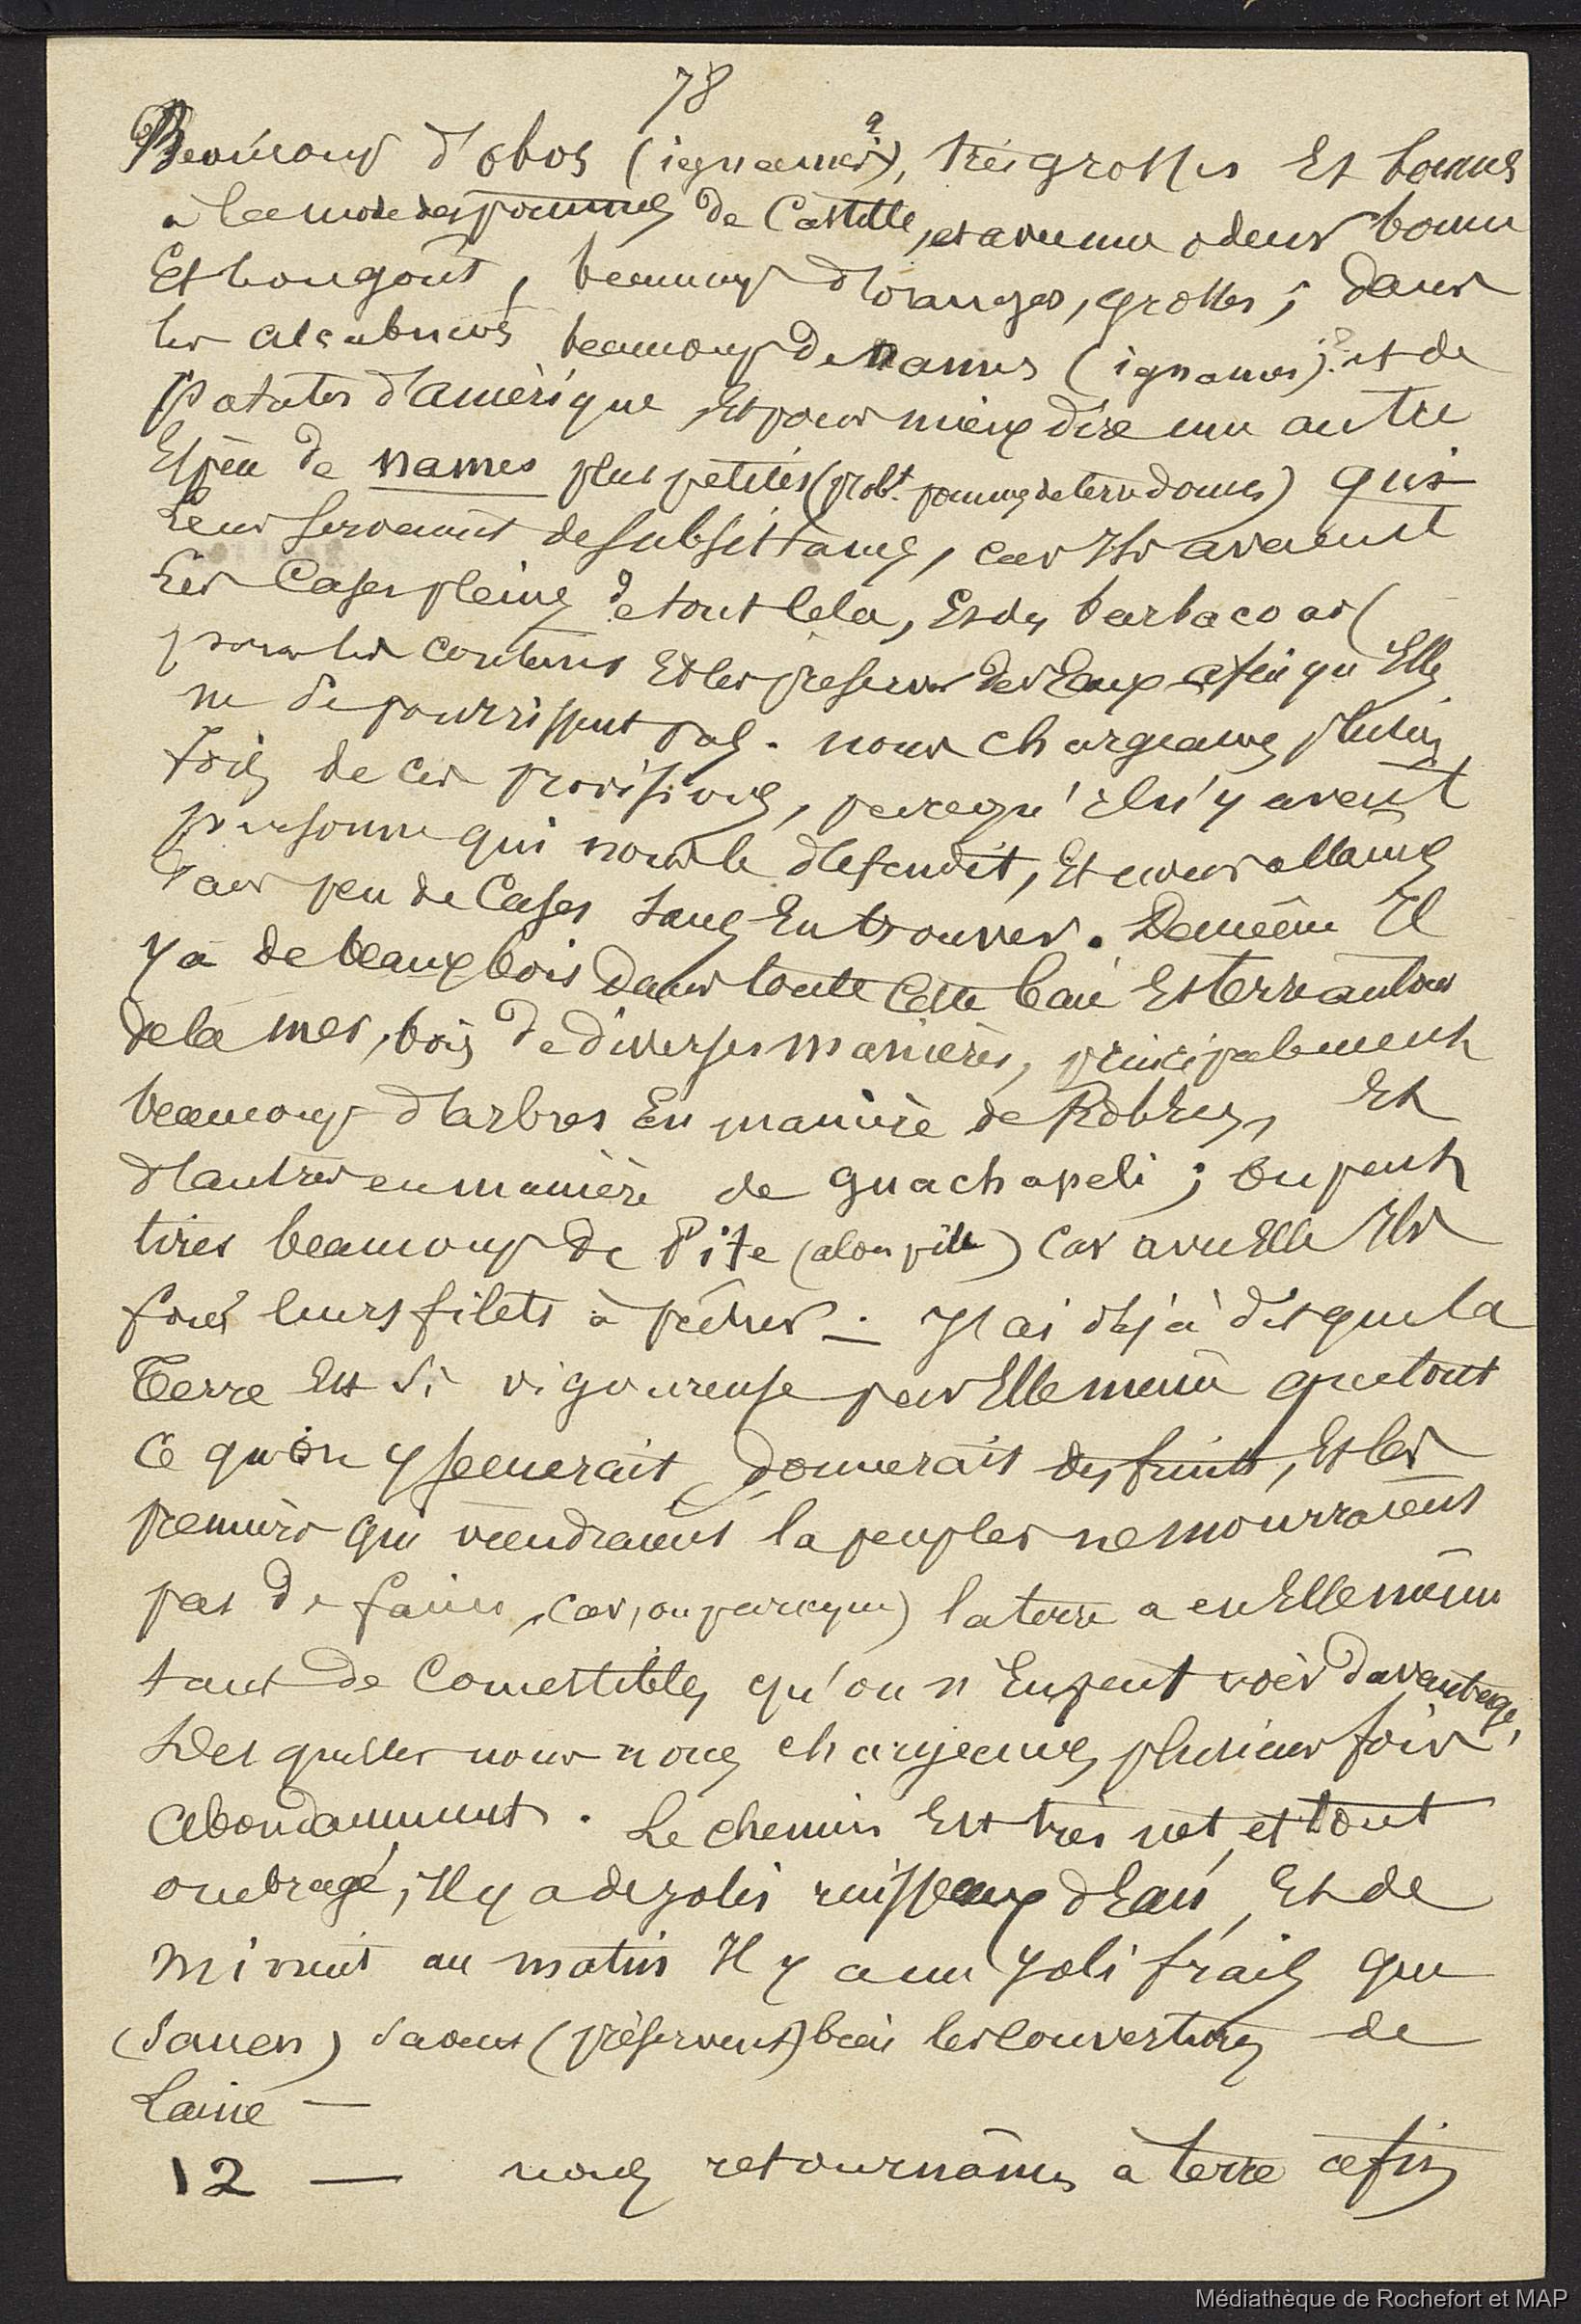 78
Beaucoup d'obos (ignames?), très grosses Et bonnes
à la mode des pommes de Castille, et avec une odeur bonne
Et bon goût, beaucoup d'oranges, grosses; dans
les beaucoup de names (ignames)? et de
Patates d'amérique, Et pour mieux dire une autre
Espèce de names plus petites (probt. pommes de terre douces) qui
leur servaient de subsistance, car Ils avaient
les Cases pleines de tout cela, Et des barbacoas
pour les contenir Et les préserver des Eaux afin qu'Elles
ne se pourrissent pas. nous chargeames plusieurs
fois de ces provisions, parcequ'Il n'y avait
personne qui nous le défendit, Et nous allames
dans peu de Cases sans En trouver. De même Il
y a de beaux bois dans toute Cette baie Et terre autour
de la mer, bois de diverses manières, principalement
beaucoup d'arbres En manière de Robles, Et
d'autres en manière de guachapeli; On peut
tirer beaucoup de Pite (aloes pite) Car avec Elle Ils
font leurs filets à pêcher. — J'ai déjà dit que la
Terre Est si vigoureuse par Elle même que tout
Ce qu'on y semerait donnerait des fruits, Et les
premiers qui viendraient la peupler ne mourraient
pas de faim, (car, ou parceque) la terre a en Elle même
tant de Comestibles, qu'on n'En peut voir davantage,
Desquelles nous nous chargeames plusieurs fois
abondamment. Le chemin Est très net, et tout
ombragé, Il y a de jolis ruisseaux d'Eau, Et de
Minuit au matin Il y a un joli frais que
(saven) savent (préservent) bien les couvertures de
Laine —
12 — nous retournâmes à terre afin
Médiathèque de Rochefort et MAP